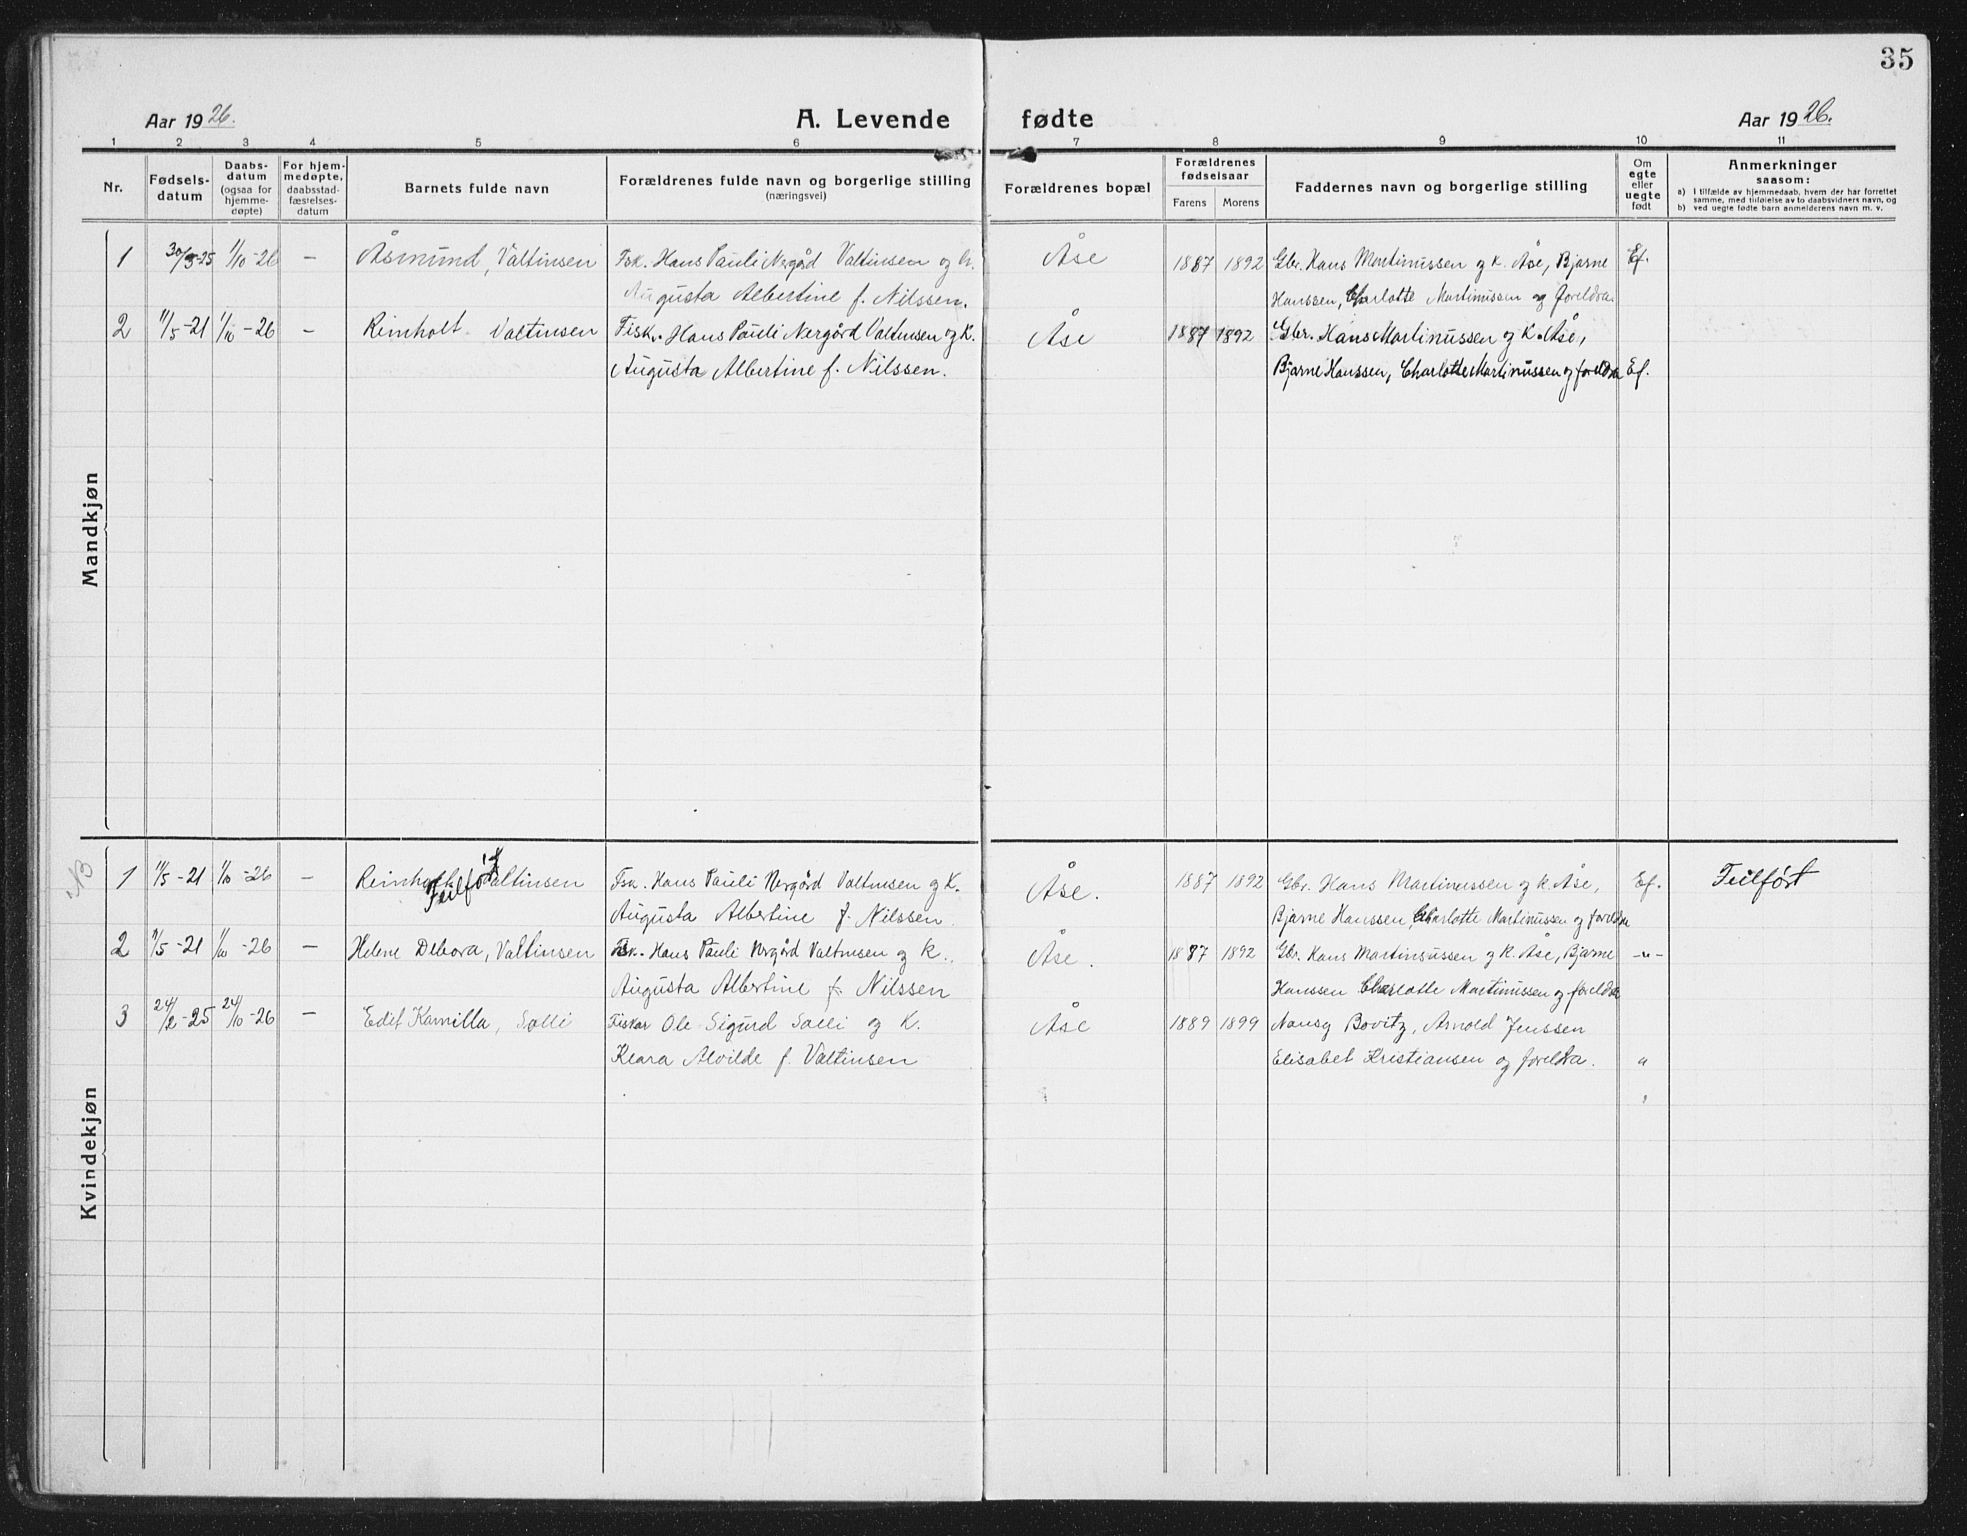 35
Aar 1926. A. Levende fødte Aar 1926.
1 2 3 4 5 6 7 8 9 10 11
Nr. Fødselsdatum Daabsdatum (ogsaa for hjemmedøpte) For hjemmedøpte, daabsstadfæstelsesdatum Barnets fulde navn Forældrenes fulde navn og borgerlige stilling (næringsvei) Forældrenes bopæl Forældrenes fødselsaar Farens Morens Faddernes navn og borgerlige stilling Om egte eller uegte født Anmerkninger saasom:
a) I tilfælde av hjemmedaab, hvem der har forrettet samme, med tilføielse av to daabsvidners navn, og
b) ved uegte fødte barn anmelderens navn m. v.
Mandkjøn
1 30/3-25 1/10-26 — Åsmund, Valtinsen Fsk. Hans Pauli Nergård Valtinsen og k. Åse 1887 1892 Gbr. Hans Martinussen og k. Åse, Bjarne Ef.
Augusta Albertine f. Nilssen. Hanssen, Charlotte Martinussen og foreldra
2 11/5-21 1/10-26 — Reinholt Valtinsen Fisk. Hans Pauli Nergård Valtinsen og k. Åse 1887 1892 Gbr. Hans Martinussen og k. Åse,
Augusta Albertine f. Nilssen. Bjarne Hanssen, Charlotte Martinussen og foreldra Ef.
Kvindekjøn
NB 1 11/5-21 1/10-26 — Reinholt Valtinsen Feilført Fsk. Hans Pauli Nergård Valtinsen og k. Åse. 1887 1892 Gbr. Hans Martinussen og k. Åse, Ef. Feilført
Augusta Albertine f. Nilssen. Bjarne Hanssen, Charlotte Martinussen og foreldra
2 11/5-21 1/10-26 — Helene Debora, Valtinsen Fsk. Hans Pauli Nergård Valtinsen og k. Åse. 1887 1892 Gbr. Hans Martinsussen og k. Åse, Bjarne -"-
Augusta Albertine f. Nilssen Hanssen Charlotte Martinussen og foreldra
3 24/2-25 24/10-26 — Edit Kamilla, Solli Fiskar Ole Sigurd Solli og k. Åse 1889 1899 Nansy Bovitz, Arnold Jenssen
Klara Alvilde f. Valtinsen Elisabet Kristiansen og foreldra. "